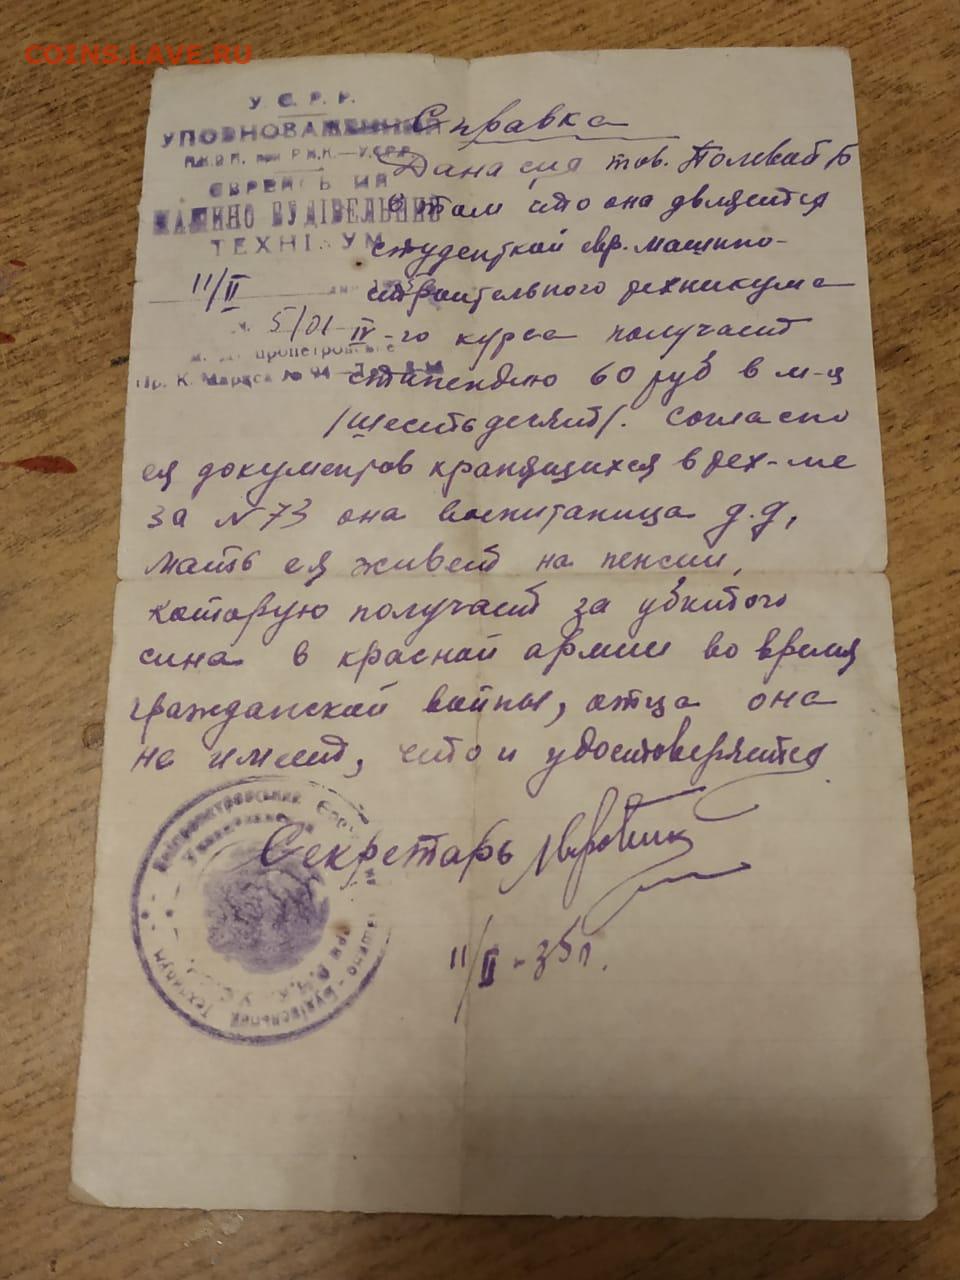 COINS.LAVE.RU
У.С.Р.Р.
УПОВНОВАЖЕНИЙ
Н.К.В.П. при Р.Н.К.—У.С.Р.Р.
ЄВРЕЙСЬ ИЙ
МАШИНО БУДІВЕЛЬНИЙ
ТЕХНІ УМ
11/II
5/01
Пр. К. Маркса №
Справка
Дана сия тов. Полевой Б
в том что она является
студенткой евр. машино-
строительного техникума
IV-го курса получает
стипендию 60 руб в м-ц
/шестьдесят/. Согласно
ея документов хранящихся в тех-ме
за №73 она воспитаница д.д,
мать ея живет на пенсии,
которую получает за убитого
сина в красной армии во время
гражданской войны, отца она
не имеет, что и удостоверяется
Секретарь
11/II-35г.
Дніпропетровський
Машино-Будівельний Технікум